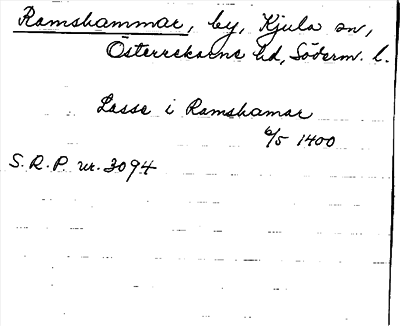 Ramshammar, by, Kjula sn,
Österrekarne hd, Söderm. l.
Lasse i Ramshamar
6/5 1400
S.R.P. nr. 3094